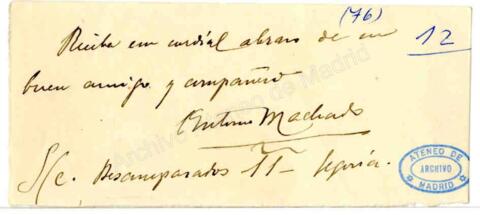 (76)
12
Reciba un cordial abrazo de su
buen amigo y compañero
Antonio Machado
S/c. Desamparados 11 - Segovia.
ATENEO DE
ARCHIVO
MADRID
Archivo Ateneo de Madrid